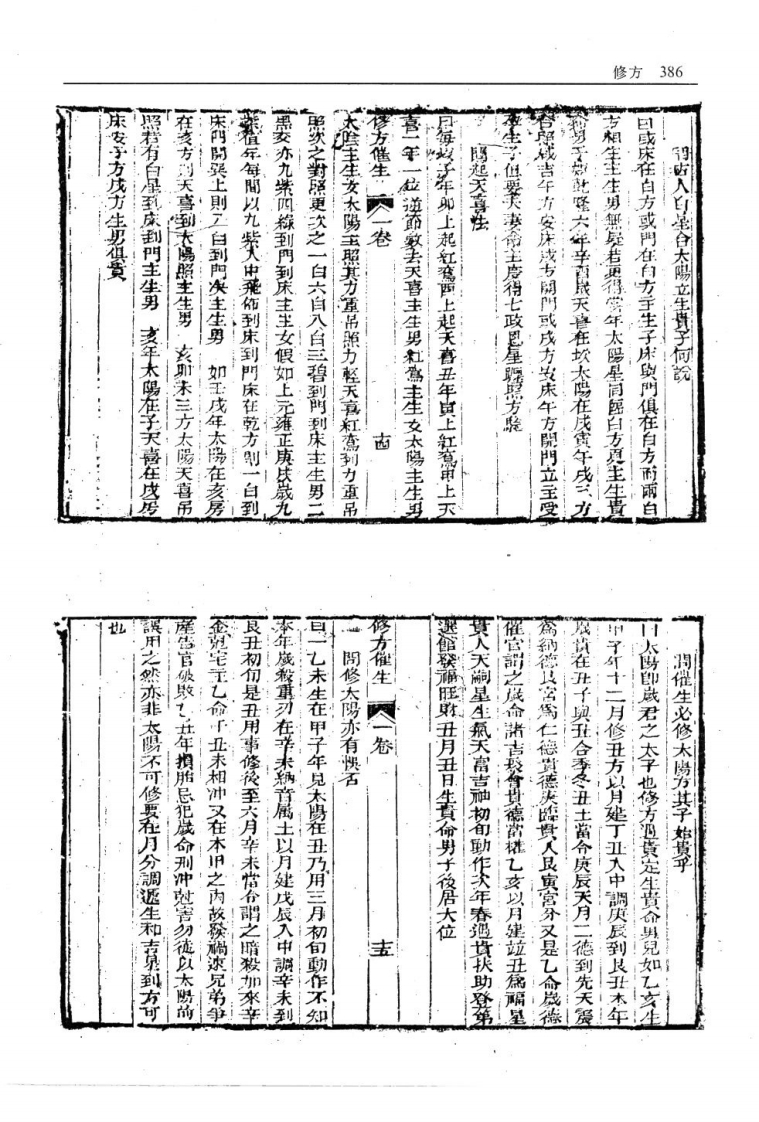 修方 386
問古人白星合太陽立生貴子何說
曰或床在白方或門在白方主生子床與門俱在白方而兩白
方相生主生男無疑若更得當年太陽星同臨白方更主生貴
男子如乾隆六年辛酉歲天喜在坎太陽在戌寅午戌三方
合照咸吉午方安床戌方開門或戌方安床午方開門立主受
孕生子但要夫妻命主度得七政恩星照方驗
問起天喜法
曰每歲子年卯上起紅鸞酉上起天喜丑年寅上紅鸞申上天
喜一年一位逆節數去天喜主生男紅鸞主生女太陽主生男
修方催生 一卷 十四
太陰主生女太陽主照其力重吊照力輕天喜紅鸞到方重吊
照次之對照更次之一白六白八白三碧到門到床主生男二
黑五赤九紫四綠到門到床主生女假如上元雍正庚戌歲九
紫值年每間以九紫入中飛佈到床到門床在乾方則一白到
床門開巽上則八白到門決主生男 如壬戌年太陽在亥房
在亥方則天喜到太陽照主生男 亥卯未三方太陽天喜吊
照若有白星到床到門主生男 亥年太陽在子天喜在戌房
床安子方戌方生男俱貴
問催生必修太陽方其子始貴乎
曰太陽即歲君之太子也修方遇貴定生貴命男兒如乙亥生
甲子年十二月修丑方以月建丁丑入中調庚辰到艮丑本年
歲貴在丑子與丑合季冬丑土當令庚辰天月二德到先天震
爲納德艮宮爲仁德貴德庚臨貴人艮寅宮分又是乙命歲德
催官謂之歲命諸吉聚會貴德當權乙亥以月建並丑爲福星
貴人天嗣星生氣天富吉神初旬動作次年春遇貴扶助登第
選館發福旺財丑月丑日生貴命男子後居大位
修方催生 一卷 十五
問修太陽亦有悞否
曰一乙未生在甲子年見太陽在丑乃用三月初旬動作不知
本年歲殺重刃在辛未納音屬土以月建戊辰入中調辛未到
艮丑初旬是丑用事修後至六月辛未當令謂之暗殺加來辛
金剋宅主乙命于丑未相冲又在本旬之內故發禍速兄弟爭
産告官破敗乙丑年損胎忌犯歲命刑冲尅害勿徒以太陽尙
誤用之然亦非太陽不可修要在月分調遞生和吉星到方可
也